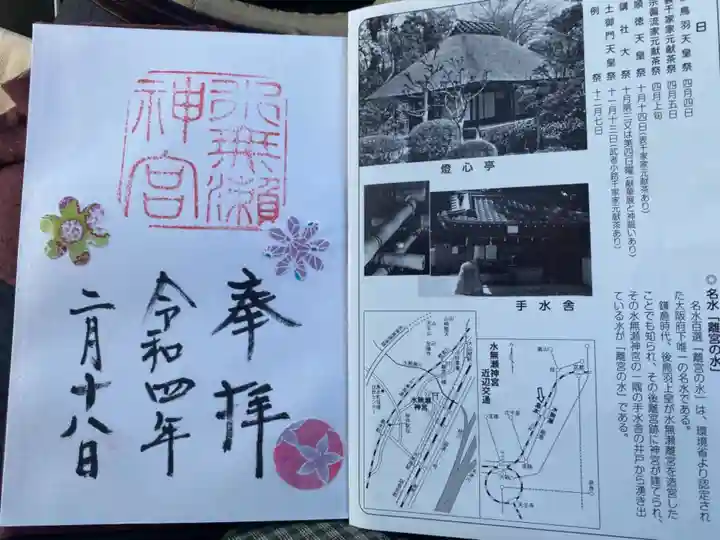 水無瀬
神宮
奉拝
令和四年
二月十八日
鳥羽天皇祭 四月四日
千家家元献茶祭 四月五日
流家元献茶祭 四月上旬
順徳天皇祭 十月十四日(表千家家元献茶あり)
講社大祭 十月第三又は第四日曜(献華展と神賑いあり)
土御門天皇祭 十一月十三日(武者小路千家家元献茶あり)
例祭 十二月七日
燈心亭
手水舎
◎名水「離宮の水」
名水百選「離宮の水」は、環境省より認定され
た大阪府下唯一の名水である。
鎌倉時代、後鳥羽上皇が水無瀬離宮を造営した
ことでも知られ、その後離宮跡に神宮が建てられ、
その水無瀬神宮の一隅の手水舎の井戸から湧き出
ている水が「離宮の水」である。
水無瀬神宮
近辺交通
水無瀬
神宮